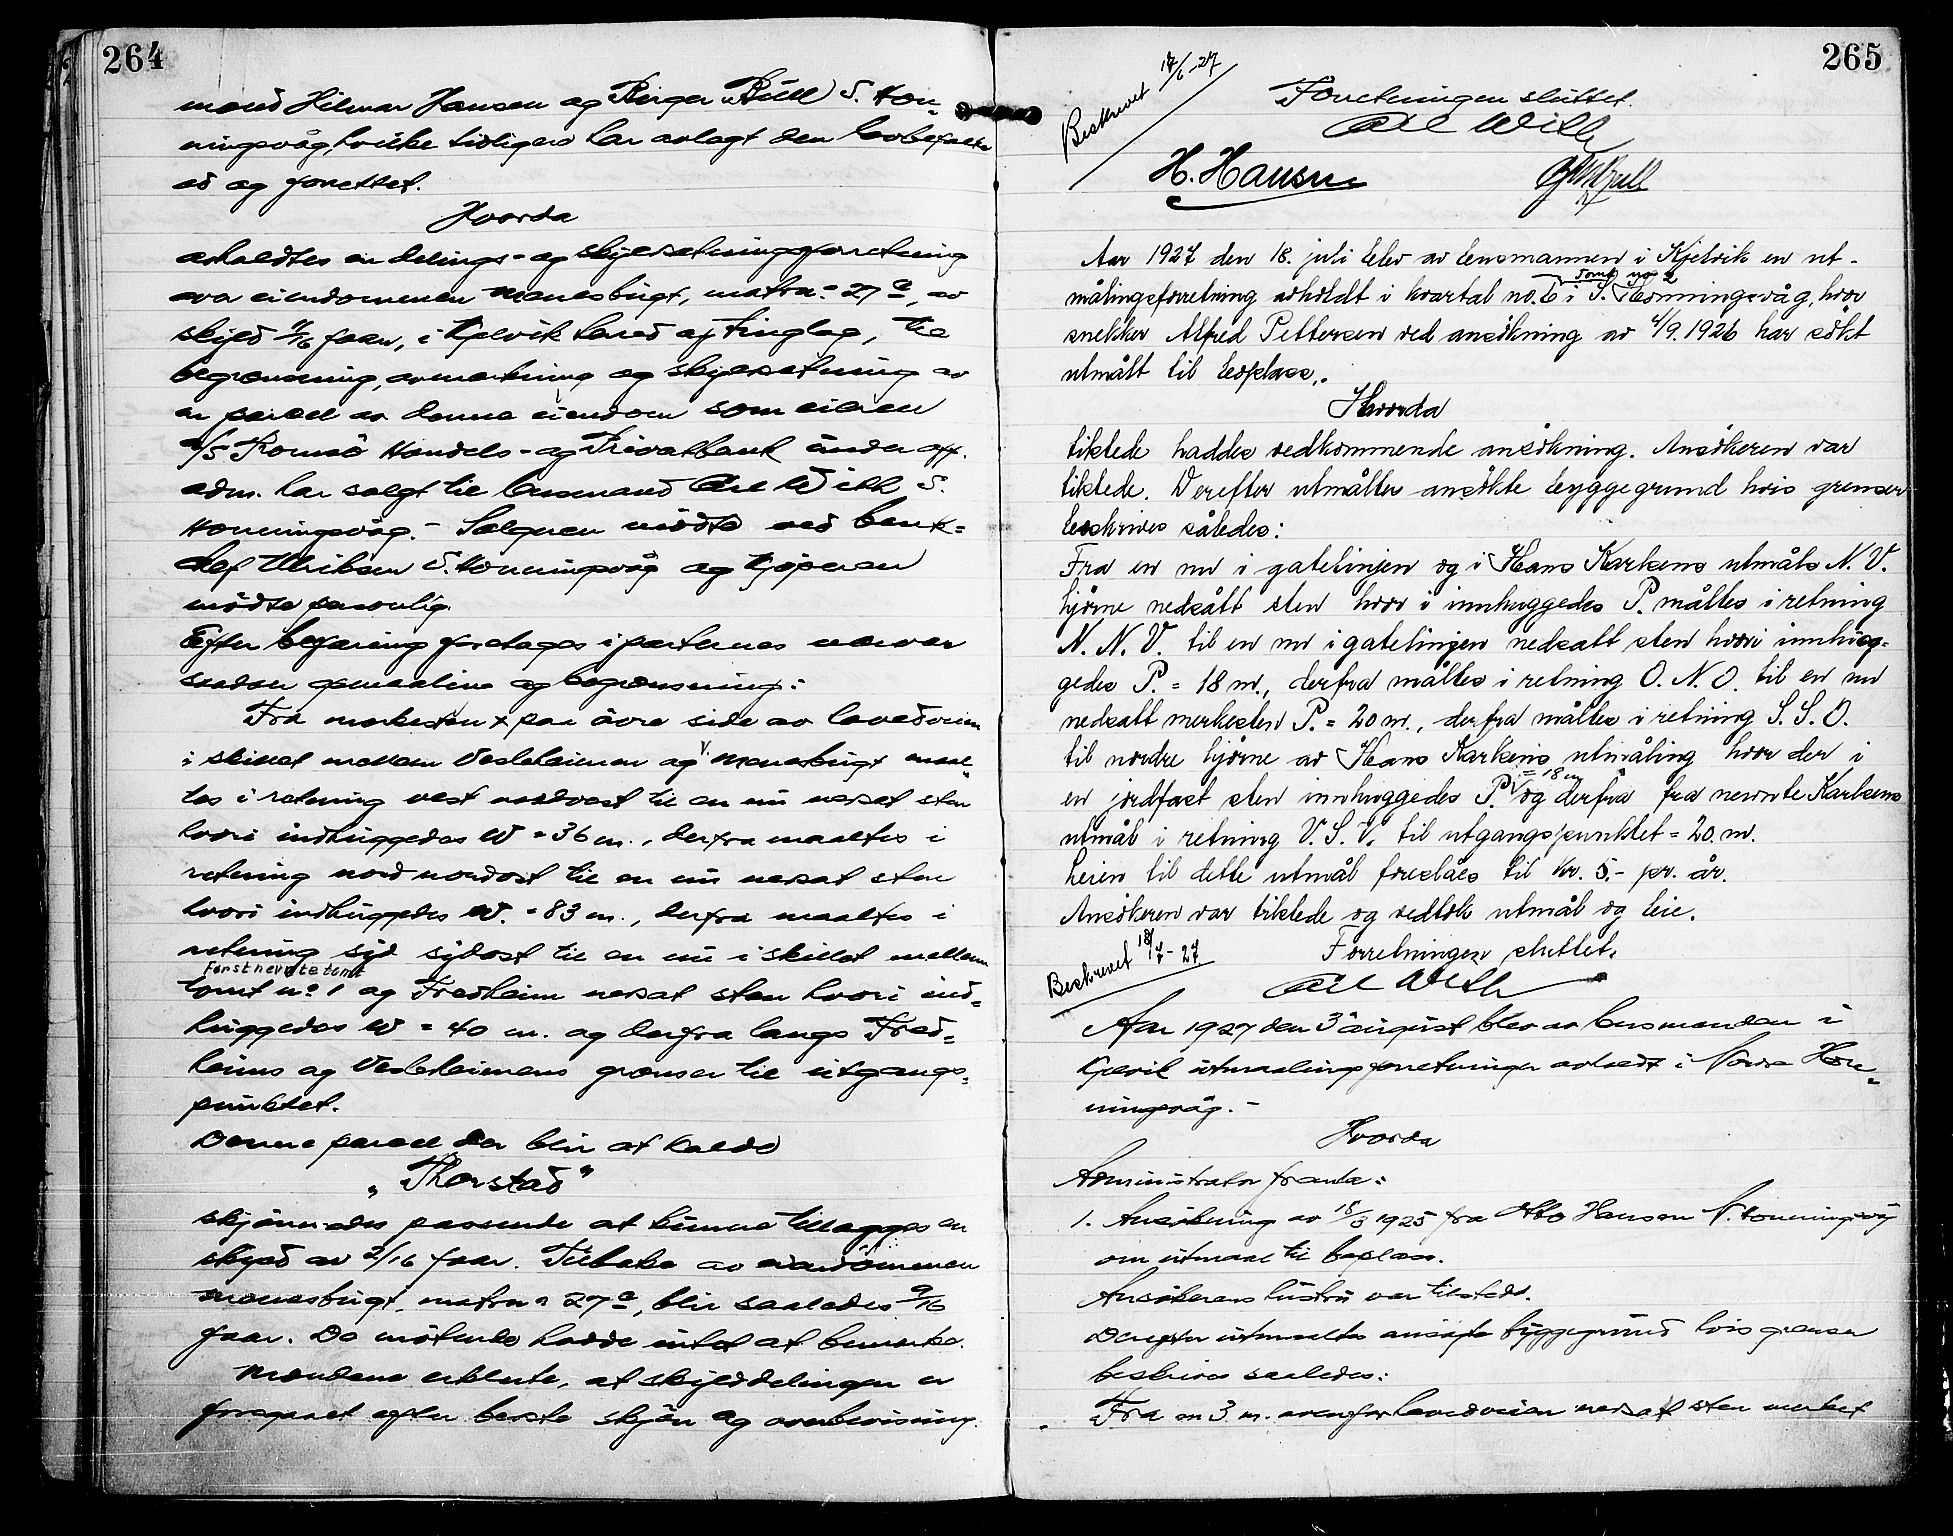 264
mænd Hilmar Hansen og Birger Büll S. Hon-
ningsvåg, hvilke tidligere har avlagt den lovbefalte
ed og forrettet.
Hvorda
avholdtes en delings- og skyldsætningsforretning
over eiendommen Menesbugt, matr. nr. 27 a, av
skyld 11/16 faar, i Kjelvik herred og tinglag, til
begrænsning, avmerkning og skyldsætning av
en parcel av denne eiendom som eieren
A/S Tromsø Handels- og Privatbank under off.
adm. har solgt til lensmand Carl With S.
Honningsvåg. - Sælgeren mødte ved bank-
chef Ulriksen S. Honningsvåg og kjøperen
mødte personlig.
Efter befaring foretages i parternes nærvær
saadan opmaaling og begrænsning:
Fra merkesten x paa øvre side av hovedveien
i skillet mellem Vesleheimen og Menesbugt maal-
tes i retning vest nordvest til en nu nedsat sten
hvori indhuggedes W = 36 m., derfra maaltes i
retning nord nordost til en nu nedsat sten
hvori indhuggedes W. = 83 m., derfra maaltes i
retning syd sydost til en nu i skillet mellem
førstnevnte tomt
tomt no 1 og Fredheim nedsat sten hvori ind-
huggedes W = 40 m. og derfra langs Fred-
heims og Vesleheimens grænser til utgangs-
punktet.
Denne parcel der blir at kalde
"Thorstad"
skjønnedes passende at kunne tillægges en
skyld av 2/16 faar. Tilbake av eiendommen
Menesbugt, matr. nr 27 a, blir saaledes 9/16
faar. De møtende hadde intet at bemerke.
Mændene erklærte, at skylddelingen er
foregaaet efter bedste skjøn og overbevisning.
265
Beskrevet 17/6-27
Forretningen sluttet.
Carl With
H. Hansen
Aar 1927 den 18. juli blev av lensmannen i Kjelvik en ut-
tomt no 2
målingsforretning avholdt i kvartal no. 6 i S. Honningsvåg, hvor
snekker Alfred Pettersen ved ansøkning av 4/9.1926 har søkt
utmålt til boplass.
Hvorda
tilstede haddes vedkommende ansøkning. Ansøkeren var
tilstede. Derefter utmåltes ansøkte byggegrund hvis grenser
beskrives således:
Fra en nu i gatelinjen og i Hans Karlsens utmåls N. V.
hjørne nedsatt sten hvor i innhuggedes P. måltes i retning
N. N. V. til en nu i gatelinjen nedsatt sten hvori innhug-
gedes P. = 18 m., derfra måltes i retning O. N. O. til en nu
nedsatt merkesten P. = 20 m., derfra måltes i retning S. S. O.
til nordre hjørne av Hans Karlsens utmåling hvor der i
= 18 m
en jordfast sten innhuggedes P. og derfra fra nevnte Karlsens
utmål i retning V. S. V. til utgangspunktet = 20. m.
Leien til dette utmål foreslåes til kr. 5.- pr. år.
Ansøkeren var tilstede og vedtok utmål og leie.
Beskrevet 18/7-27
Forretningen sluttet.
Carl With
Aar 1927 den 3 august blev av lensmanden i
Kjelvik utmaalingsforretninger avholdt i Nordre Hon-
ningsvåg. -
Hvorda
Administrator fremla:
1. Ansøkning av 15/3 1925 fra Otto Hansen N. Honningsvåg
om utmaal til boplass.
Ansøkerens hustru var tilstede.
Derefter utmaaltes ansøgte byggegrund hvis grænser
beskrives saaledes:
Fra en 3 m. ovenfor hovedveien nedsat sten merket